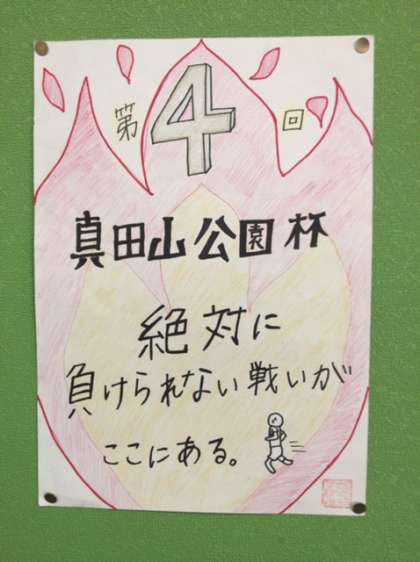 第4回
真田山公園杯
絶対に
負けられない戦いが
ここにある。